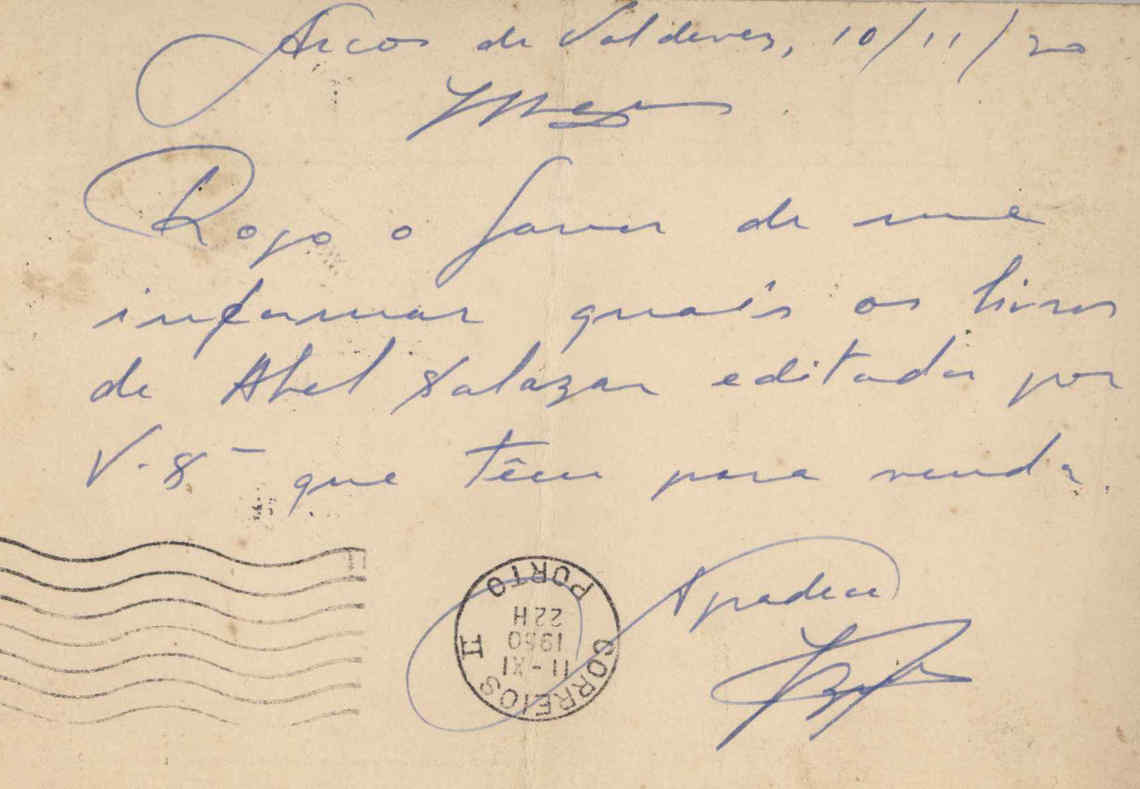 Arcos de Valdevez, 10/11/50
Rogo o favor de me
informar quais os livros
de Abel Salazar editados por
V. S. que têm para venda.
Agradece
CORREIOS PORTO II
11-XI
1950
22H